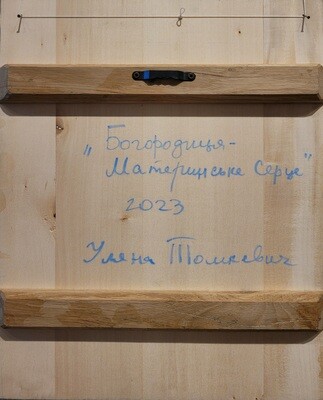 „Богородиця-
Материнське Серце"
2023
Уляна Томкевич